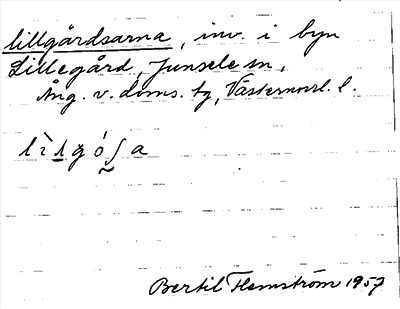 lillgårdsarna, inv. i byn
Lillegård, Junsele sn,
Ång. v. doms. tg, Västernorrl. l.
Bertil Flemström 1957